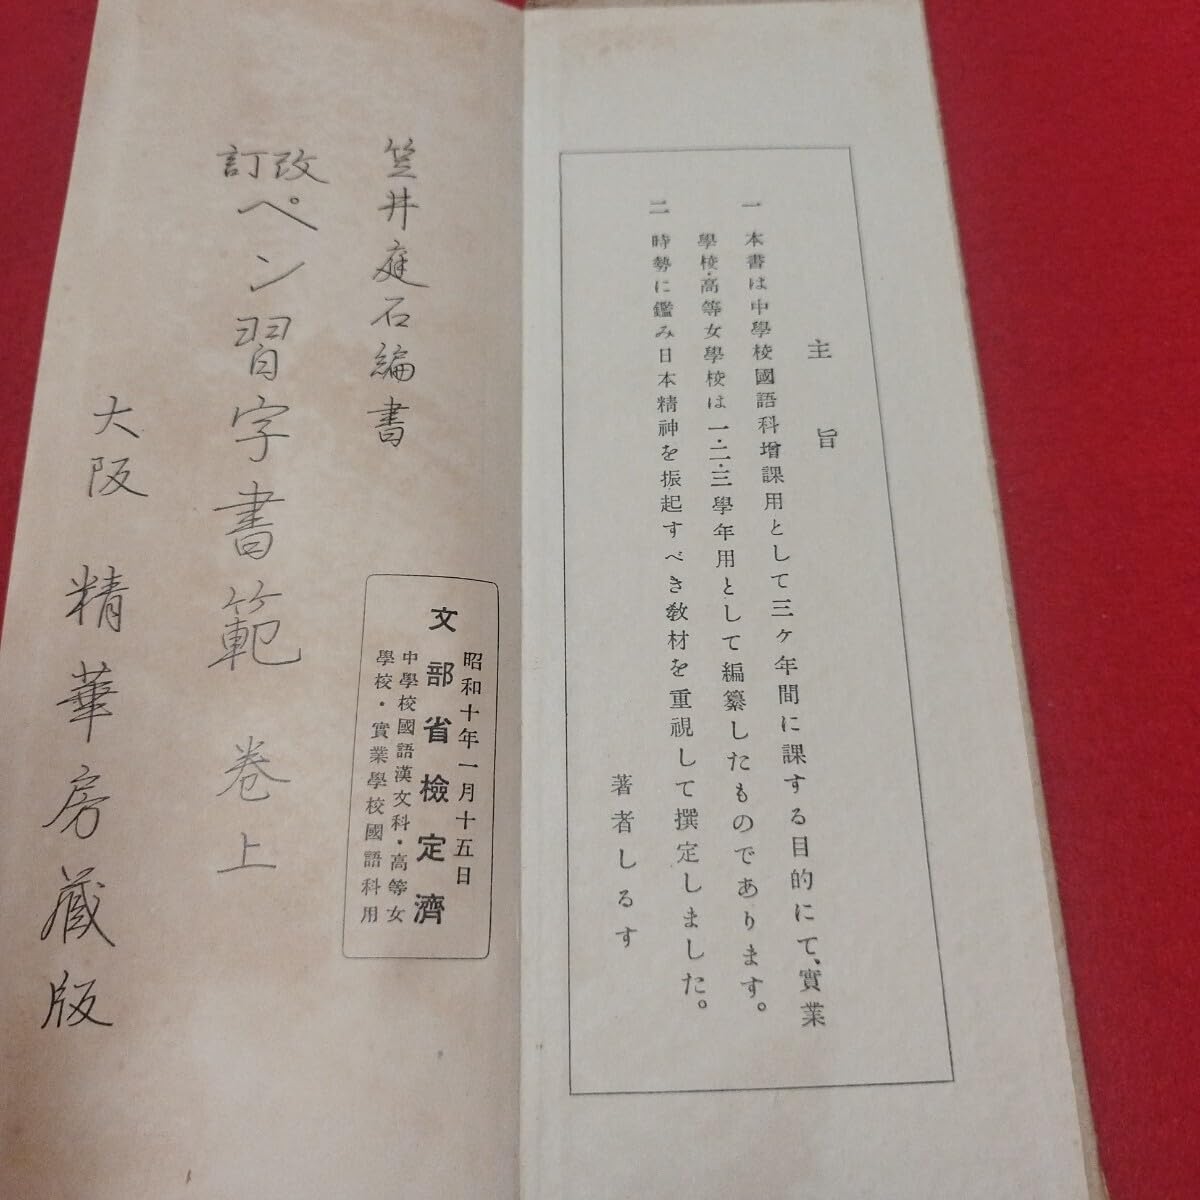 主旨
一 本書は中學校國語科增課用として三ケ年間に課する目的にて、實業
學校・高等女學校は一・二・三學年用として編纂したものであります。
二 時勢に鑑み日本精神を振起すべき敎材を重視して撰定しました。
著者しるす
笠井庭石編書
改訂ペン習字書範 卷上
大阪 精華房蔵版
昭和十年一月十五日
文部省檢定濟
中學校國語漢文科・高等女
學校・實業學校國語科用